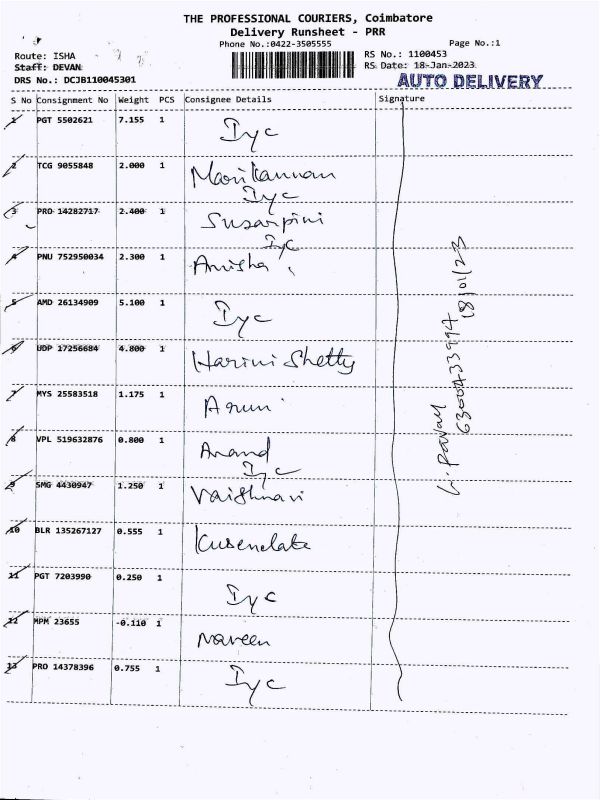 THE PROFESSIONAL COURIERS, Coimbatore
Delivery Runsheet - PRR
Phone No.:0422-3505555 Page No.:1
Route: ISHA RS No.: 1100453
Staff: DEVAN RS Date: 18-Jan-2023
DRS No.: DCJB110045301 AUTO DELIVERY
S No Consignment No Weight PCS Consignee Details Signature
1 PGT 5502621 7.155 1
Iyc
2 TCG 9055848 2.000 1 Marikannan
Iyc
3 PRO 14282717 2.400 1 Susarpini
Iyc
4 PNU 752950034 2.300 1 Anisha
5 AMD 26134909 5.100 1
Iyc
6 UDP 17256684 4.800 1 Harini Shetty
7 MYS 25583518 1.175 1 Arun
8 VPL 519632876 0.800 1 Anand
Iyc
9 SMG 4430947 1.250 1 Vaishnavi
10 BLR 135267127 0.555 1
11 PGT 7203990 0.250 1
Iyc
12 MPM 23655 -0.110 1
Naveen
13 PRO 14378396 0.755 1
Iyc
6300433994
18/01/23